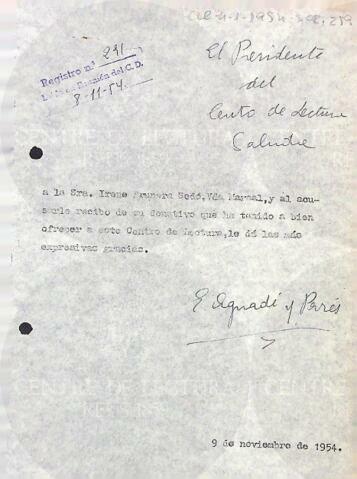 Registro nº 291
Reunión del C.D.
8-11-54.
El Presidente
del
Centro de Lectura
Saluda
a la Sra. Irene Prunera Sedó, Vda Maynal, y al acu-
sarle recibo de su donativo que ha tenido a bien
ofrecer a este Centro de Lectura, le dá las más
expresivas gracias.
E Aguadé y Parés
9 de noviembre de 1954.